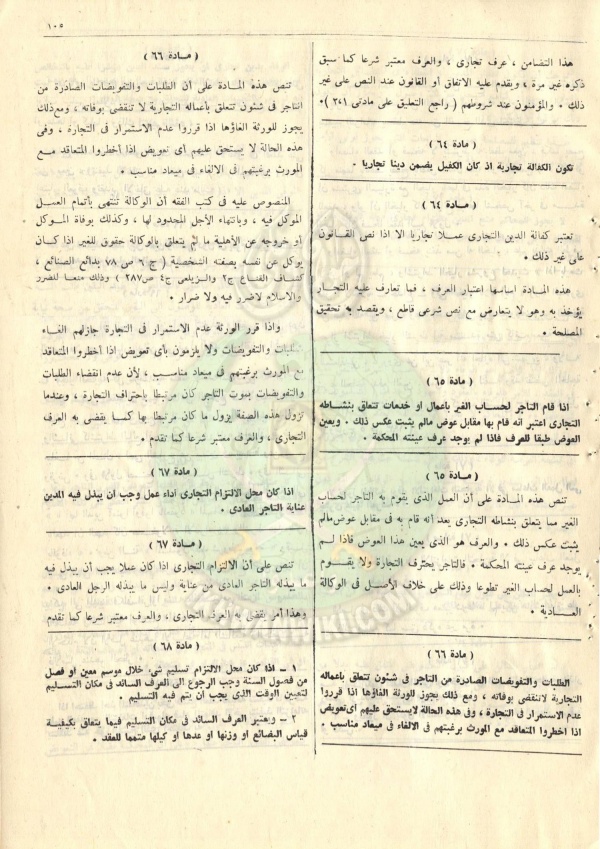 ١٠٥
هذا التضامن ، عرف تجارى ، والعرف معتبر شرعا كما سبق
ذكره غير مرة ، ويقدم عليه الاتفاق أو القانون عند النص على غير
ذلك . والمؤمنون عند شروطهم ( راجع التعليق على مادتى ٢٠١ ) .
( مادة ٦٤ )
تكون الكفالة تجارية اذ كان الكفيل يضمن دينا تجاريا .
( مادة ٦٤ )
تعتبر كفالة الدين التجارى عملا تجاريا الا اذا نص القانون
على غير ذلك .
هذه المادة اساسها اعتبار العرف ، فما تعارف عليه التجار
يؤخذ به وهو لا يتعارض مع نص شرعى قاطع ، ويقصد به تحقيق
المصلحة .
( مادة ٦٥ )
اذا قام التاجر لحساب الغير بأعمال او خدمات تتعلق بنشاطه
التجارى اعتبر انه قام بها مقابل عوض مالم يثبت عكس ذلك . ويعين
العوض طبقا للعرف فاذا لم يوجد عرف عينته المحكمة .
( مادة ٦٥ )
تنص هذه المادة على أن العمل الذى يقوم به التاجر لحساب
الغير مما يتعلق بنشاطه التجارى يعد أنه قام به فى مقابل عوض مالم
يثبت عكس ذلك . والعرف هو الذى يعين هذا العوض فاذا لم
يوجد عرف عينته المحكمة . فالتاجر يحترف التجارة ولا يقوم
بالعمل لحساب الغير تطوعا وذلك على خلاف الأصل فى الوكالة
العادية .
( مادة ٦٦ )
الطلبات والتفويضات الصادرة من التاجر فى شئون تتعلق باعماله
التجارية لاتنقضى بوفاته ، ومع ذلك يجوز للورثة الغاؤها اذا قرروا
عدم الاستمرار فى التجارة ، وفى هذه الحالة لايستحق عليهم أى تعويض
اذا اخطروا المتعاقد مع المورث برغبتهم فى الالغاء فى ميعاد مناسب .
( مادة ٦٦ )
تنص هذه المادة على أن الطلبات والتفويضات الصادرة من
التاجر فى شئون تتعلق بأعماله التجارية لا تنقضى بوفاته ، ومع ذلك
يجوز للورثة الغاؤها اذا قرروا عدم الاستمرار فى التجارة ، وفى
هذه الحالة لا يستحق عليهم أى تعويض اذا أخطروا المتعاقد مع
المورث برغبتهم فى الالغاء فى ميعاد مناسب .
المنصوص عليه فى كتب الفقه أن الوكالة تنتهى بأتمام العمل
الموكل فيه ، وبانتهاء الأجل المحدود لها ، وكذلك بوفاة الموكل
أو خروجه عن الأهلية ما لم يتعلق بالوكالة حقوق للغير اذا كان
يوكل عن نفسه بصفته الشخصية ( ج ٦ ص ٧٨ بدائع الصنائع ،
كشاف القناع ج٢ والزيلعى ج٤ ص٢٨٧ ) وذلك منعا للضرر
والاسلام لاضرر فيه ولا ضرار .
واذا قرر الورثة عدم الاستمرار فى التجارة جاز لهم الغاء
الطلبات والتفويضات ولا يلزمون بأى تعويض اذا أخطروا المتعاقد
مع المورث برغبتهم فى ميعاد مناسب ، لأن عدم انقضاء الطلبات
والتفويضات بموت التاجر كان مرتبطا باحتراف التجارة ، وعندما
تزول هذه الصفة يزول ما كان مرتبطا بها كما يقضى به العرف
التجارى ، والعرف معتبر شرعا كما تقدم .
( مادة ٦٧ )
اذا كان محل الالتزام التجارى أداء عمل وجب أن يبذل فيه المدين
عناية التاجر العادى .
( مادة ٦٧ )
تنص على أن الالتزام التجارى اذا كان عملا يجب أن يبذل فيه
ما يبذله التاجر العادى من عناية وليس ما يبذله الرجل العادى .
وهذا أمر يقضى به العرف التجارى ، والعرف معتبر شرعا كما تقدم
( مادة ٦٨ )
١ – اذا كان محل الالتزام تسليم شىء خلال موسم معين او فصل
من فصول السنة وجب الرجوع الى العرف السائد فى مكان التسليم
لتعيين الوقت الذى يجب أن يتم فيه التسليم .
٢ – ويعتبر العرف السائد فى مكان التسليم فيما يتعلق بكيفية
قياس البضائع او وزنها او عدها او كيلها متمما للعقد .